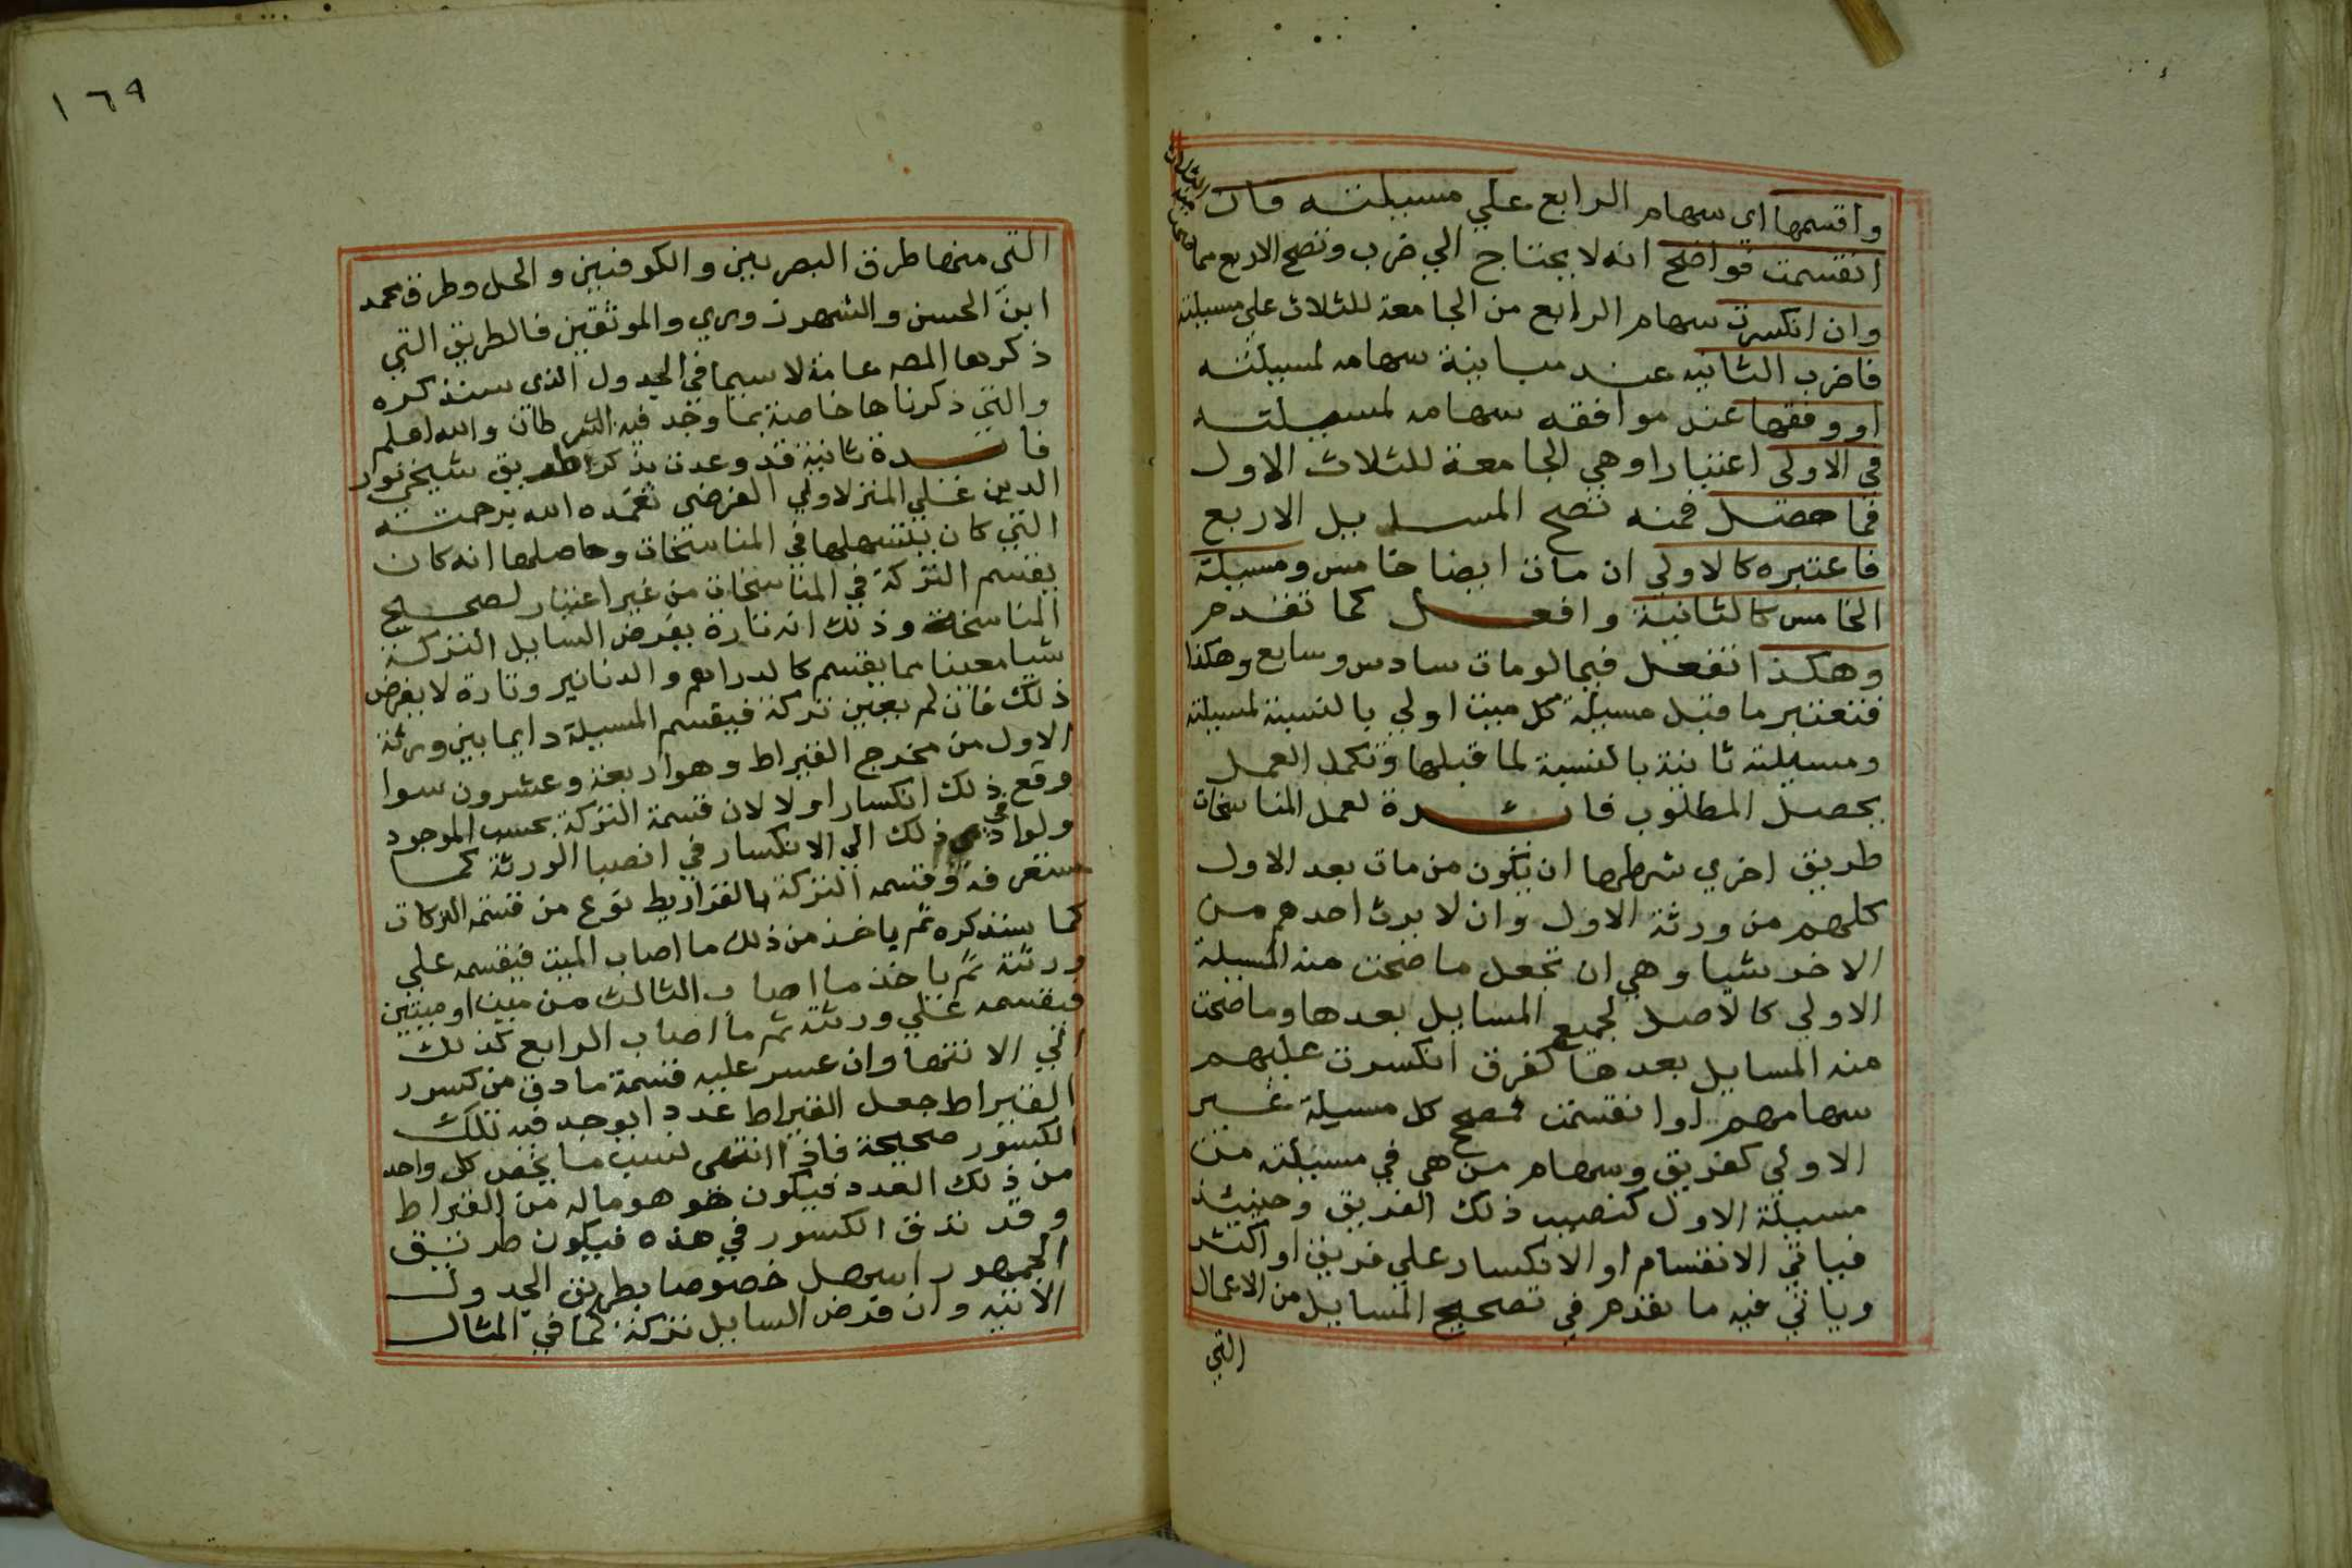 واقسمها اى سهام الرابع علي مسيلته فان
انقسمت فواضح انه لا يحتاج الي ضرب وتصح الاربع مما صحت منه الثلاث
وان انكسرت سهام الرابع من الجامعة للثلاث علي مسيلته
فاضرب الثانيه عند مباينة سهامه لمسيلته
او وفقها عند موافقه سهامه لمسيلته
في الاولى اعتبارا وهي الجامعة للثلاث الاول
فما حصل فمنه تصح المسايل الاربع
فاعتبره كالاولي ان مات ايضا خامس ومسيلة
الخامس كالثانية وافعل كما تقدم
وهكذا تفعل فيما لو مات سادس وسابع وهكذا
فتعتبر ما قبل مسيلة كل ميت اولي بالنسبة لمسيلته
ومسيلته ثانية بالنسبة لما قبلها وتكمل العمل
يحصل المطلوب فائدة لعمل المناسخات
طريق اخري شرطها ان يكون من مات بعد الاول
كلهم من ورثة الاول وان لا يرث احدهم من
الاخر شيا وهي ان تجعل ما صحت منه المسيلة
الاولي كالاصل لجميع المسايل بعدها وما صحت
منه المسايل بعدها كفرق انكسرت عليهم
سهامهم او انقسمت فمصح كل مسيلة غير
الاولي كفريق وسهام من هي في مسيلته من
مسيلة الاول كنصيب ذلك الفريق وحينئذ
فياتي الانقسام او الانكسار علي فريق او اكثر
وياتي فيه ما تقدم في تصحيح المسايل من الاعمال
التي
١٦٩
التي منها طرق البصريين والكوفيين والحل وطرق محمد
ابن الحسن والشهرزوري والموثقين فالطريق التي
ذكرها المصه عامة لا سيما في الجدول الذى سنذكره
والتي ذكرناها خاصة بما وجد فيه الشرطان والله اعلم
فائدة ثانية قد وعدت بذكر طريق شيخي نور
الدين علي المنزلاوي الفرضى تغمده الله برحمته
التي كان يستسهلها في المناسخات وحاصلها انه كان
يقسم التركة في المناسخات من غير اعتبار لصحيح
المناسخة وذلك انه تارة يفرض السايل التركة
شيا معينا مما يقسم كالدراهم والدنانير وتارة لا يفرض
ذلك فان لم يعين تركة فيقسم المسيلة دايما بين ورثة
الاول من مخرج القيراط وهو اربعة وعشرون سوا
وقع في ذلك انكسار اولا لان قسمة التركة بحسب الموجود
ولو ادي ذلك الي الانكسار في انصبا الورثة كما
ستعرفه وقسمه التركة بالقراريط نوع من قسمة التركات
كما سنذكره ثم ياخذ من ذلك ما اصاب الميت فيقسمه علي
ورثته ثم ياخذ ما اصاب الثالث من ميت او ميتين
فيقسمه علي ورثته ثم ما اصاب الرابع كذلك
الي الانتها وان عسر عليه قسمة ما دق من كسور
القيراط جعل القيراط عددا يوجد فيه تلك
الكسور صحيحة فاذا انتهى نسب ما يخص كل واحد
من ذلك العدد فيكون هو ماله من القيراط
وقد تدق الكسور في هذه فيكون طريق
الجمهور اسهل خصوصا بطريق الجدول
الاتيه وان فرض السايل تركة كما في المثال